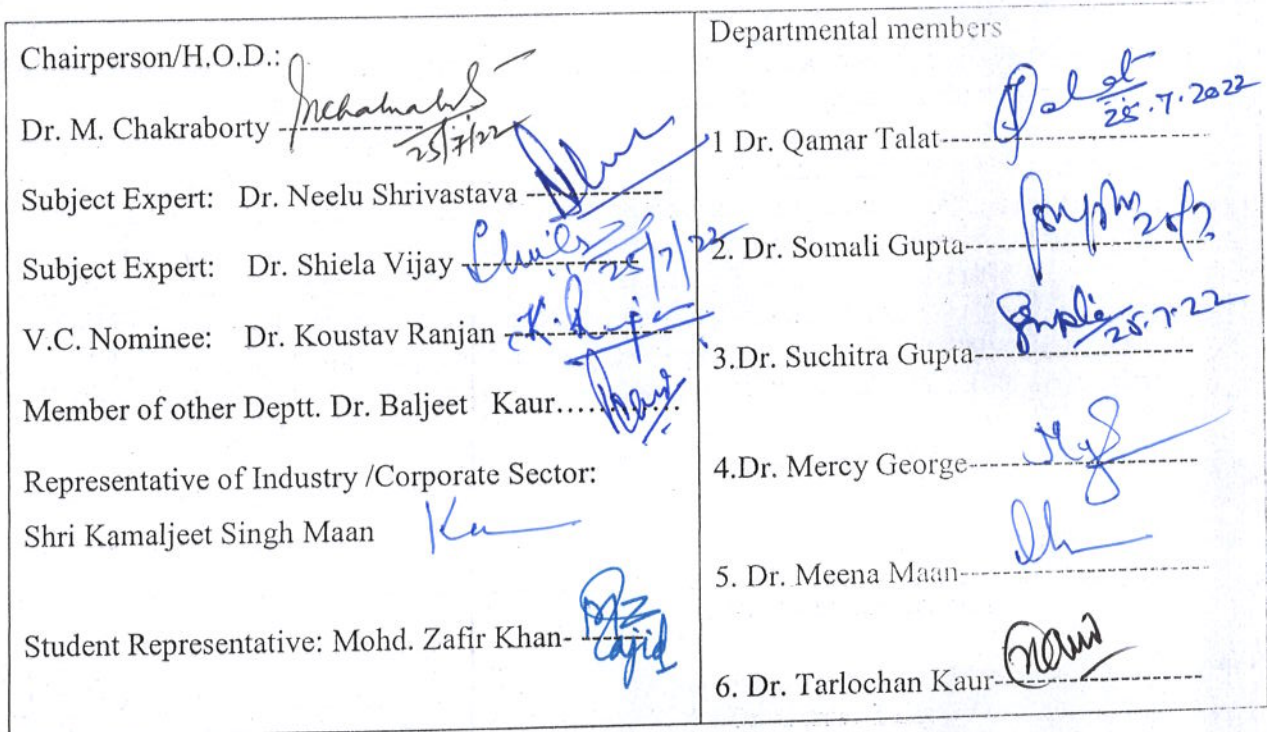 Chairperson/H.O.D.:
Dr. M. Chakraborty ------------- 25/7/22
Subject Expert: Dr. Neelu Shrivastava -------------
Subject Expert: Dr. Shiela Vijay ------------- 25/7/22
V.C. Nominee: Dr. Koustav Ranjan -------------
Member of other Deptt. Dr. Baljeet Kaur............
Representative of Industry /Corporate Sector:
Shri Kamaljeet Singh Maan
Student Representative: Mohd. Zafir Khan- -------
Departmental members
1 Dr. Qamar Talat------------- 25.7.2022
2. Dr. Somali Gupta-------------
3.Dr. Suchitra Gupta------------- 25.7.22
4.Dr. Mercy George-------------
5. Dr. Meena Maan-------------
6. Dr. Tarlochan Kaur-------------